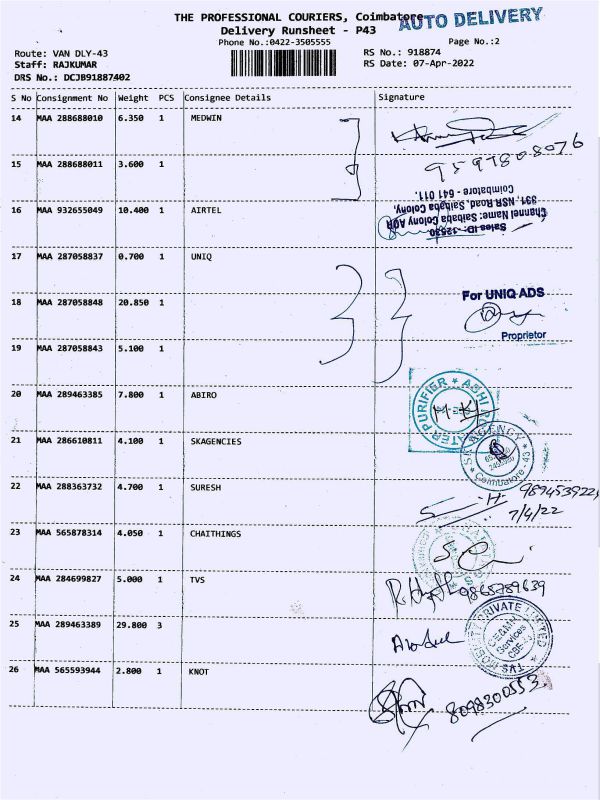 THE PROFESSIONAL COURIERS, Coimbatore
AUTO DELIVERY
Delivery Runsheet - P43
Phone No.:0422-3505555
Page No.:2
Route: VAN DLY-43
RS No.: 918874
Staff: RAJKUMAR
RS Date: 07-Apr-2022
DRS No.: DCJB91887402
S No Consignment No Weight PCS Consignee Details Signature
14 MAA 288688010 6.350 1 MEDWIN
9597808076
15 MAA 288688011 3.600 1
Coimbatore - 641 011.
331, NSR Road, Saibaba Colony,
Channel Name: Saibaba Colony AOR
16 MAA 932655049 10.400 1 AIRTEL
Sales ID.: 12530
17 MAA 287058837 0.700 1 UNIQ
For UNIQ ADS
18 MAA 287058848 20.850 1
Proprietor
19 MAA 287058843 5.100 1
20 MAA 289463385 7.800 1 ABIRO
WATER PURIFIER ★ ABHI
21 MAA 286610811 4.100 1 SKAGENCIES
AGENCY
Coimbatore - 43
22 MAA 288363732 4.700 1 SURESH
9894539221
7/4/22
23 MAA 565878314 4.050 1 CHAITHINGS
24 MAA 284699827 5.000 1 TVS
9865789639
25 MAA 289463389 29.800 3
PRIVATE LIMITED
Services
TVS
26 MAA 565593944 2.800 1 KNOT
8098300553